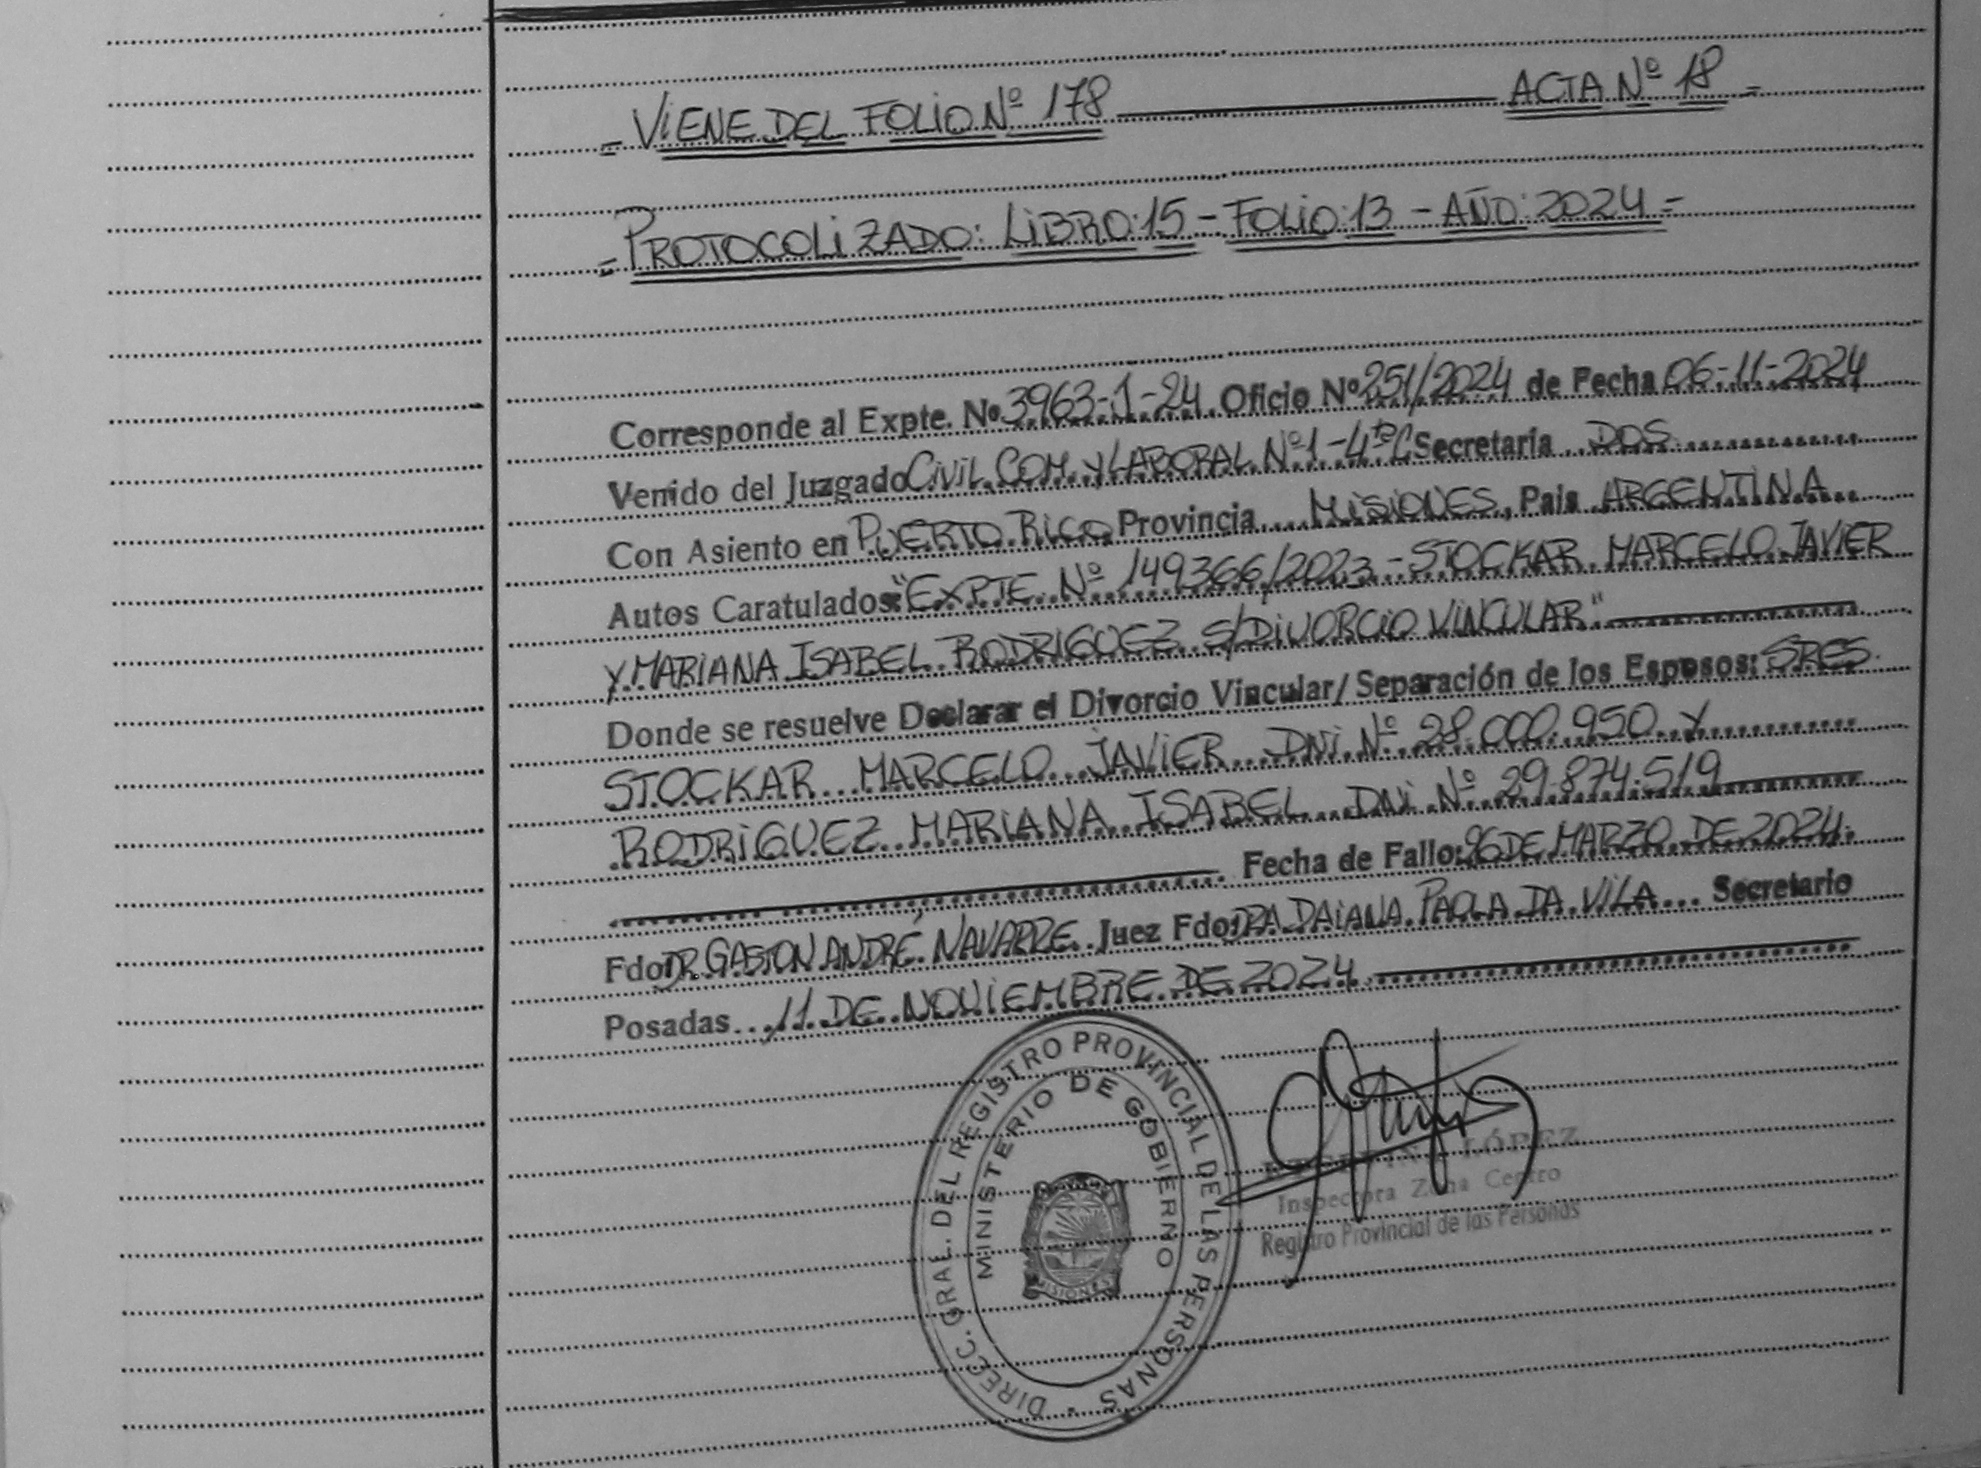 = VIENE DEL FOLIO Nº 178 ACTA Nº 18 =
= PROTOCOLIZADO: LIBRO: 15 - FOLIO: 13 - AÑO: 2024 =
Corresponde al Expte. Nº 3963-1-24 Oficio Nº 251/2024 de Fecha 06-11-2024
Venido del Juzgado CIVIL COM. Y LABORAL Nº 1 - 4ta C Secretaría DOS
Con Asiento en PUERTO RICO Provincia MISIONES, País ARGENTINA
Autos Caratulados: "EXPTE. Nº 149366/2023 - STOCKAR MARCELO JAVIER
Y MARIANA ISABEL RODRIGUEZ S/DIVORCIO VINCULAR"
Donde se resuelve Declarar el Divorcio Vincular/ Separación de los Esposos: SRES.
STOCKAR MARCELO JAVIER DNI Nº 28.000.950 Y
RODRIGUEZ MARIANA ISABEL DNI Nº 29.874.519
Fecha de Fallo: 26 DE MARZO DE 2024.
Fdo: DR. GASTON ANDRÉ NAVARRE Juez Fdo: DRA DAIANA PAOLA DA VILA Secretario
Posadas 11 DE NOVIEMBRE DE 2024
DIREC. GRAL. DEL REGISTRO PROVINCIAL DE LAS PERSONAS
MINISTERIO DE GOBIERNO
MISIONES
LÓPEZ
Inspectora Zona Centro
Registro Provincial de las Personas